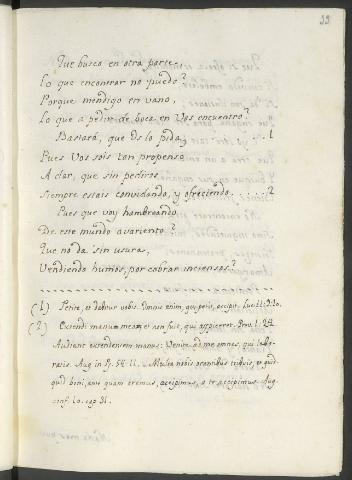 33
Que busco en otra parte,
Lo que encontrar no puedo?
Porque mendigo en vano,
Lo que a pedir de boca en Vos encuentro?
Bastará, que os lo pida, 1
Pues Vos sois tan propenso
A dar, que sin pediros
Siempre estais convidando, y ofreciendo. 2
Pues que voy hambreando
De este mundo avariento?
Que no da sin usura,
Vendiendo humos, por cobrar inciensos?
(1) Petite, et dabitur vobis. Omnis enim, qui petit, accipit. Luc. 11. 9. 10.
(2) Extendi manum meam et non fuit, qui aspiceret. Prov. 1. 24.
Audiant extendentem manus: Venite ad me omnes, qui labo-
ratis. Aug in Ps. 54. 11. Multa nobis orantibus tribuis, et quid-
quid boni, ante quam oremus, accepimus, a te accepimus. Aug.
conf. 10. cap 31.